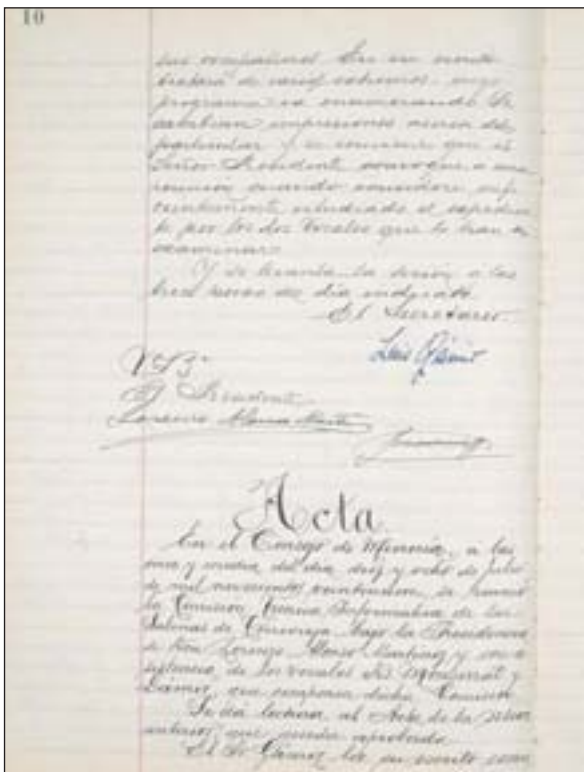 10
sus compañeros. En su
tratará de varios extremos, cuyo
programa va enumerando. Se
cambian impresiones acerca del
particular y se conviene que el
Señor Presidente convoque a una
reunión cuando considere sufi
cientemente estudiado el expedien
te por los dos Vocales que lo han de
examinar.
Y se levanta la sesión a las
trece horas del día indicado.
El Secretario
Luis Gámir
Vº Bº
El Presidente
Lorenzo Alonso Martínez
Acta
En el Consejo de Minería, a las
once y media del día diez y ocho de julio
de mil novecientos se reunió
la Comisión Informativa de las
Salinas de Torrevieja bajo la Presidencia
de Don Lorenzo Alonso Martínez y con a
sistencia de los vocales Sres Montserrat y
Gámir, que componen dicha Comisión.
Se da lectura al Acta de la sesión
anterior, que queda aprobada.
El Sr Gámir lee un escrito como